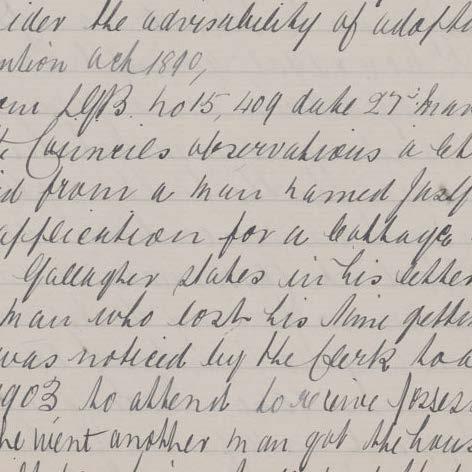 ider the advisability of adopti
ention act 1890,
om LGB. no 15,409 date 27th Mar
Councils observations a let
id from a man named
application for a Cottage
Gallagher states in his letter
man who lost his time getti
was noticed by the Clerk to a
1903, to attend to receive possess
he went another man got the hous